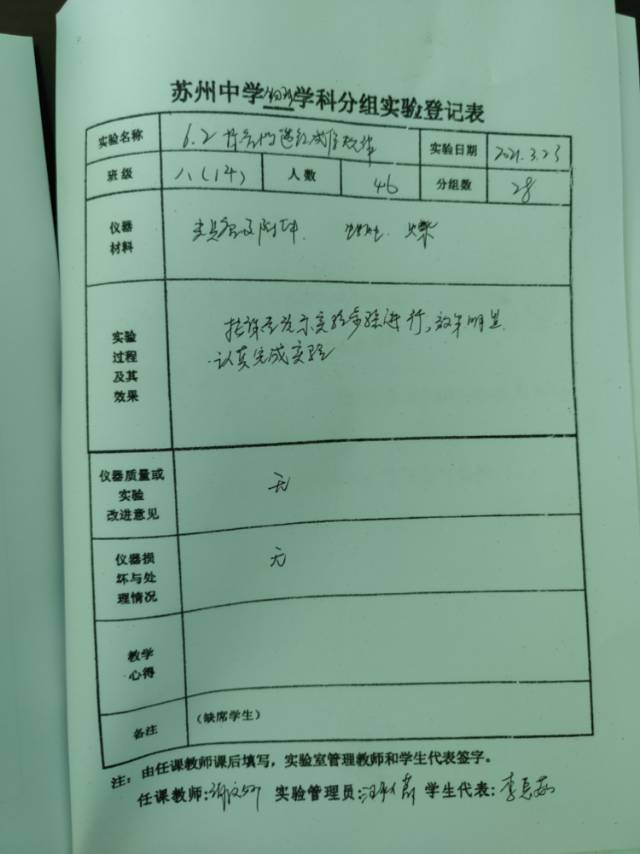 苏州中学物理学科分组实验登记表
实验名称 6.2 实验日期 2021.3.23
班级 八(14) 人数 46 分组数 28
仪器
材料
实验
过程
及其
效果
实验步骤进行,效果明显
认真完成实验
仪器质量或
实验
改进意见
无
仪器损
坏与处
理情况
无
教学
心得
备注
(缺席学生)
注:由任课教师课后填写,实验室管理教师和学生代表签字。
任课教师: 实验管理员: 学生代表:李